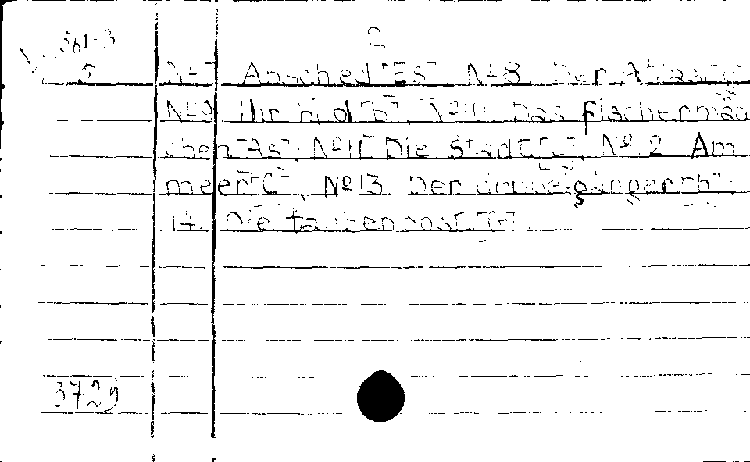 2
561-3
5 № 7 Abschied "Es" № 8 Der Atlas
№ 9 Ihr Bild "B", № 10 Das Fischermäd
chen "As", № 11 Die Stadt "C", № 12 Am
meer "C", № 13 Der doppelgänger "h"
14. Die taubenpost "G"
3729